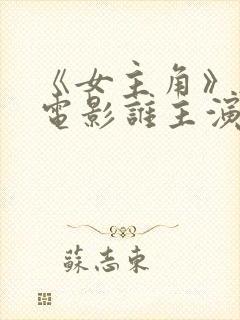 《女主角》
電影誰主演
蘇志東